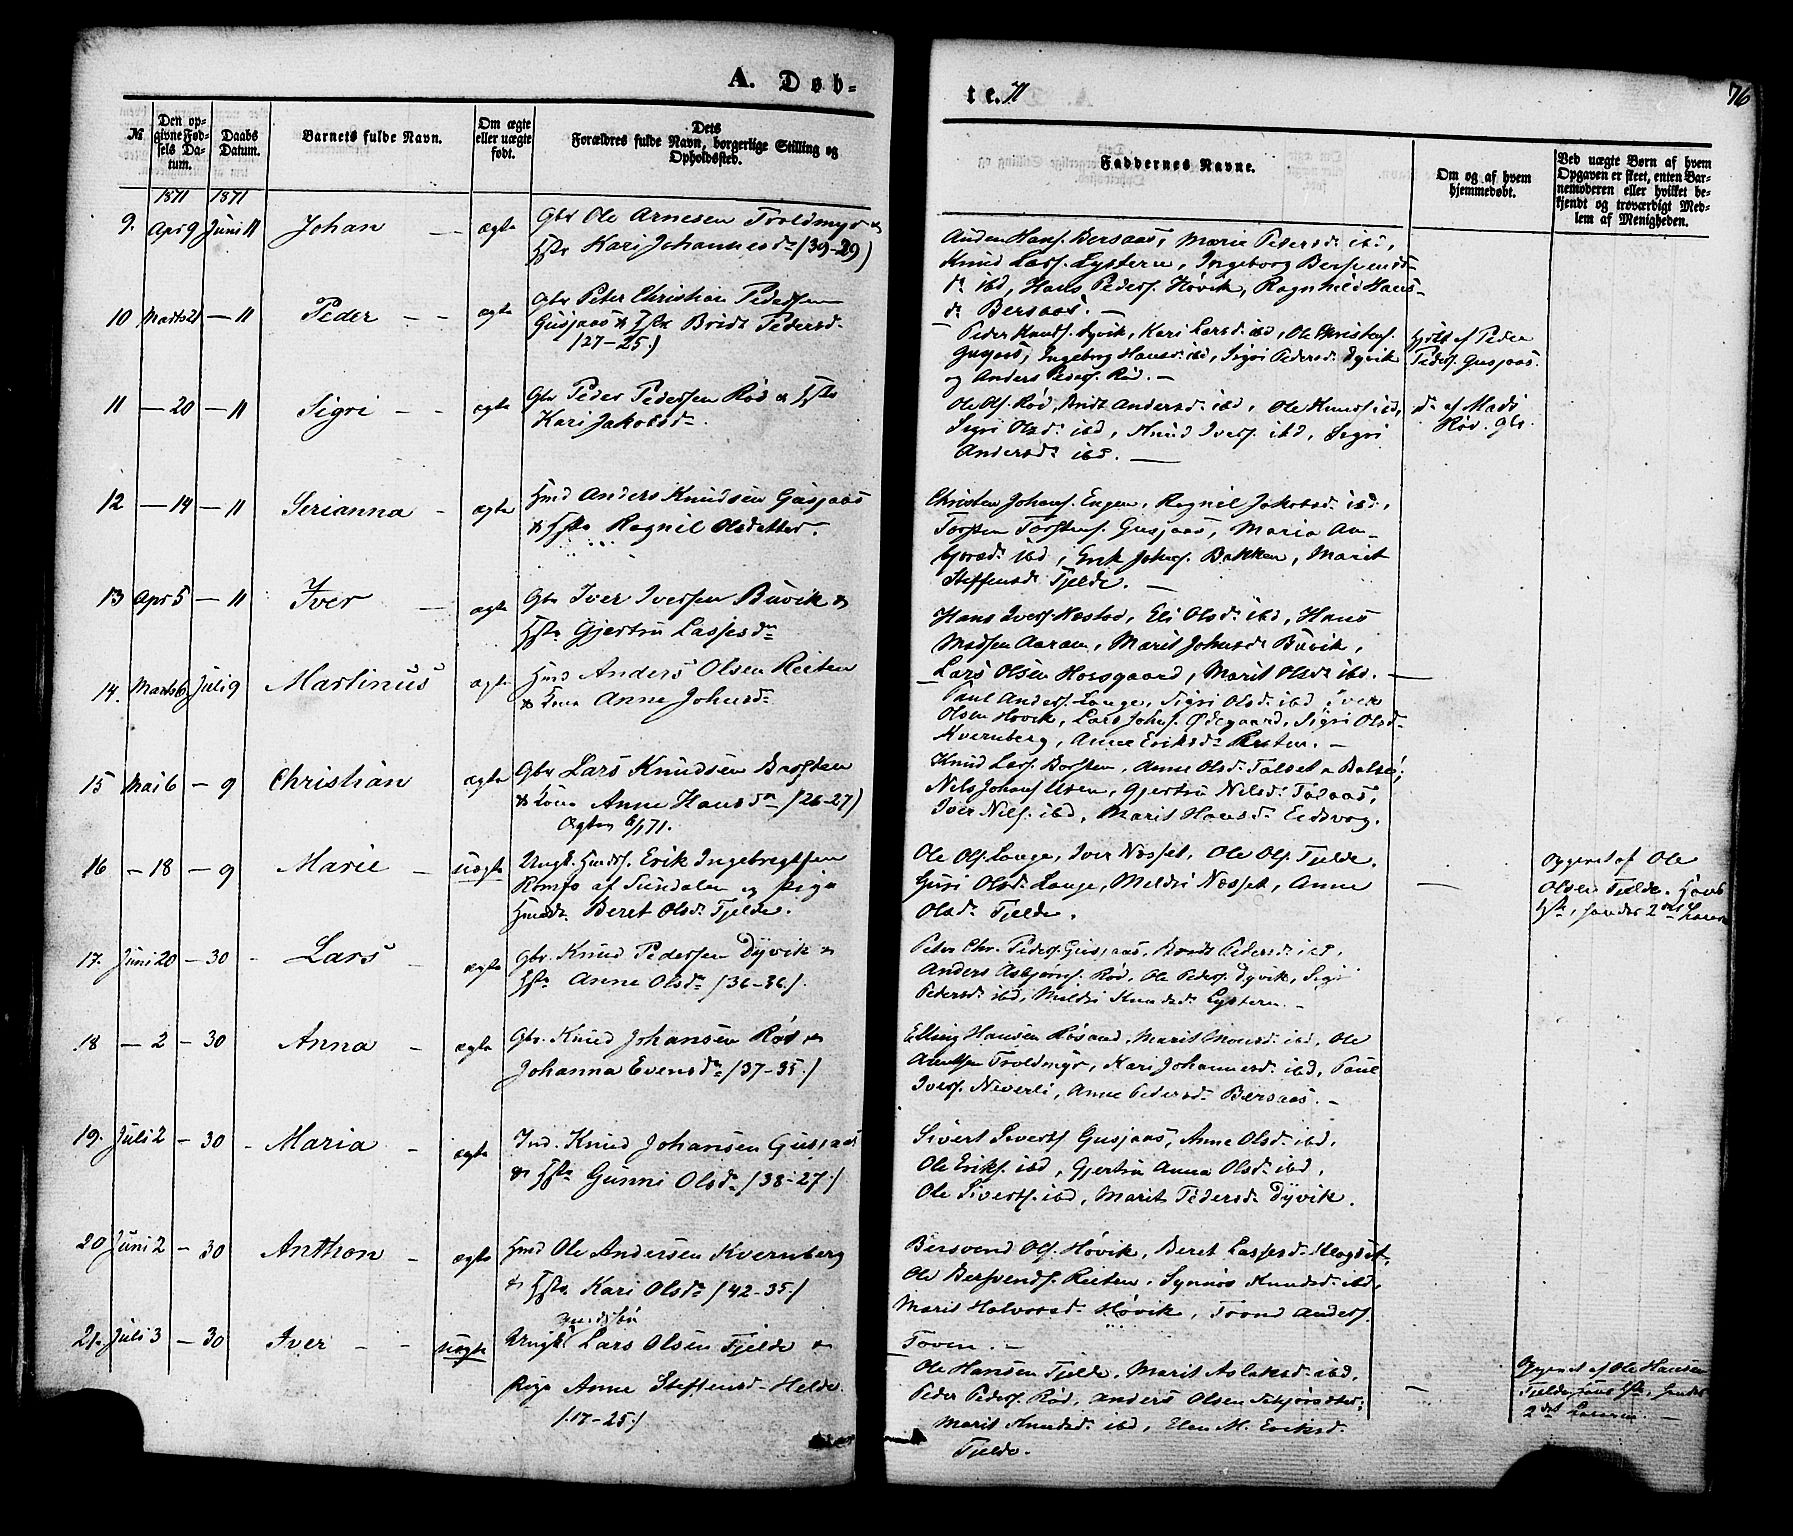 A. Døb-
te. 71
76
№
Den op-
givne Fød-
sels Da-
tum.
Daabs
Datum.
Barnets fulde Navn.
Om ægte
eller uægte
født.
Dets
Forældres fulde Navn, borgerlige Stilling og
Opholdssted.
Faddernes Navne.
Om og af hvem
hjemmedøbt.
Ved uægte Børn af hvem
Opgaven er skeet, enten Bar-
nemoderen eller hvilket be-
kjendt og troværdigt Med-
lem af Menigheden.
1871 1871
9. Apr 9 Juni 11 Johan — ægte Gbr Ole Arnesen Troldmyr &
Hstr Kari Johannesdr (39-29)
Hans Pedersf. Høvik, Ragnhild Hans-
dr Bersaas. —
10 Marts 21 — 11 Peder — — ægte Gbr Peter Christian Pedersen
Gusjaas & Hstr Bridt Pedersd.
(27-25)
Peder Knudsf. Dyvik, Kari Larsd. ibd, Ole Christensf.
Gusjaas, Ingeborg Hansd. ibd, Sigri Pedersd. Dyvik
og Anders Pedersf. Rød. —
hjdbt af Peder
Pedersf. Gusjaas.
11 — 20 — 11 Sigri — — ægte Gbr Peder Pedersen Rød & Hstr
Kari Jakobsdr.
Ole Olsf. Rød, Bridt Andersd. ibd, Ole Knudsf. ibd,
Sigri Olsd. ibd, Knud Iversf. ibd, Sigri
Andersd. ibd. —
12 — 14 — 11 Serianna — ægte Hmd Anders Knudsen Gusjaas
& Hstr Ragnil Olsdatter.
Christen Johansf. Engen, Ragnil Jakobsd. ibd,
Torsten Torstensf. Gusjaas, Maria
ibd, Erik Johnsf. Bakken, Marit
Steffensd. Fjelde. —
13 Apr 5 — 11 Iver — ægte Gbr Iver Iversen Buvik &
Hstr Gjertru Lassesdr
Hans Iversf. Næstad, Eli Olsd. ibd, Hans
Madsen Aaram, Marit Johnsd. Buvik,
Lars Olsen Horsgaard, Marit Olsd. ibd. —
14. Marts 6 Juli 9 Martinus ægte Hmd Anders Olsen Reiten
& Kona Anne Johnsdr
Paul Andersf. Lange, Sigri Olsd. ibd, Iver
Olsen Høvik, Lars Johnsf. Ødegaard, Sigri Olsd.
Kvernberg, Anne Eriksd. Reiten. —
15 Mai 6 — 9 Christian ægte Gbr Lars Knudsen Bersten
& Kona Anne Hansdr (26-27)
Ægtev 6/1 71.
Nils Johansf. Usen, Gjertru Nilsd. Talaas,
Iver Nilsf. ibd, Marit Hansd. Eidsvog.
16 — 18 — 9 Marie — uægte Ungk. Hmdsf. Erik Ingebregtsen
Romfo af Sundalen og Pige
Hmdd. Beret Olsd. Fjelde.
Ole Olsf. Lange, Iver Næsset, Ole Olsf. Fjelde.
Guri Olsd. Lange, Meldri Næsset, Anne
Olsd. Fjelde.
—
Opgivet af Ole
Olsen Fjelde.
17. Juni 20 — 30 - Lars — ægte Gbr. Knud Pedersen Dyvik &
Hstr Anne Olsdr (36-36.)
Peter Chr. Pedersf. Gusjaas, Bridt Pedersd. ibd,
Anders Asbjørnsf. Rød, Ole Pedersf. Dyvik, Sigri
Pedersd. ibd, Meldri Knudsd. Lystern. —
18 — 2 — 30 Anna — ægte Gbr. Knud Johansen Rød &
Johanna Evensdr (37-35.)
Elling Hansen Røsand, Marit Monsd. ibd, Ole
Arnesen Troldmyr, Kari Johannesd. ibd, Paul
Iversf. Neverli, Anne Pedersd. Bersaas. —
19. Juli 2 — 30 - Maria — ægte Ind. Knud Johansen Gusjaas
& Hstr Gunni Olsd. (38-27.)
Sivert Sivertsf. Gusjaas, Anne Olsd. ibd,
Ole Eriksf. ibd, Gjertru Anna Olsd. ibd,
Ole Sivertsf. ibd, Marit Pedersd. Dyvik.
20 Juni 2 — 30 Anthon — ægte Hmd Ole Andersen Kvernberg
& Hstr Kari Olsdr (42-35.)
Bersvend Olsf. Høvik, Beret Lassesd. Klogset,
Ole Bersvendsf. Reiten, Synnøv Knudsd. ibd,
Marit Halvorsd. Høvik, Trond Andersf.
Toven. —
21. Juli 3 — 30 Iver — — uægte Ungk Lars Olsen Fjelde &
Pige Anne Steffensd. Helde.
(17-25)
Ole Hansen Fjelde, Marit Aslaksd. ibd,
Peder Pedersf. Rød, Anders Olsen
Marit Knudsd. ibd, Elen M. Eriksd.
Fjelde.
—
Opgivet af Ole Hansen
Fjelde